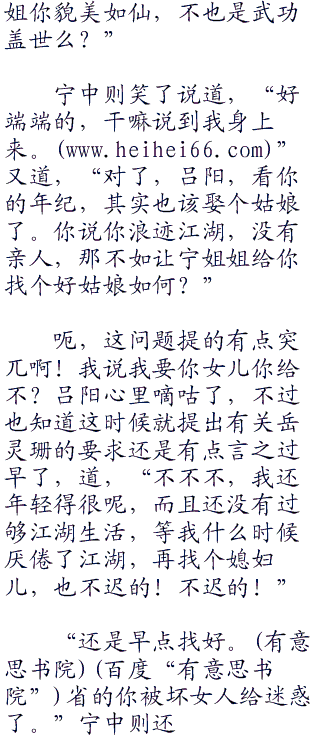 姐你貌美如仙，不也是武功
盖世么？”
宁中则笑了说道，“好
端端的，干嘛说到我身上
来。(www.heihei66.com)”
又道，“对了，吕阳，看你
的年纪，其实也该娶个姑娘
了。你说你浪迹江湖，没有
亲人，那不如让宁姐姐给你
找个好姑娘如何？”
呃，这问题提的有点突
兀啊！我说我要你女儿你给
不？吕阳心里嘀咕了，不过
也知道这时候就提出有关岳
灵珊的要求还是有点言之过
早了，道，“不不不，我还
年轻得很呢，而且还没有过
够江湖生活，等我什么时候
厌倦了江湖，再找个媳妇
儿，也不迟的！不迟的！”
“还是早点找好。(有意
思书院)(百度“有意思书
院”)省的你被坏女人给迷惑
了。”宁中则还